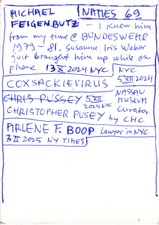 MICHAEL NAMES 69
FEIGENBUTZ – I know him
from my time @ BUNDESWEHR
1979 – 81. Susanne Iris Weber
just brought him up while on
phone 13 X 2024 NYC NYC
COXSACKIEVIRUS 5 XII 2024
CHRIS PUSSEY 5 XII 2024 NYC NASSAU MUSEUM
CHRISTOPHER PUSEY Curator by CHC
ARLENE F. BOOP lawyer in NYC
3 II 2025 NY TIMES